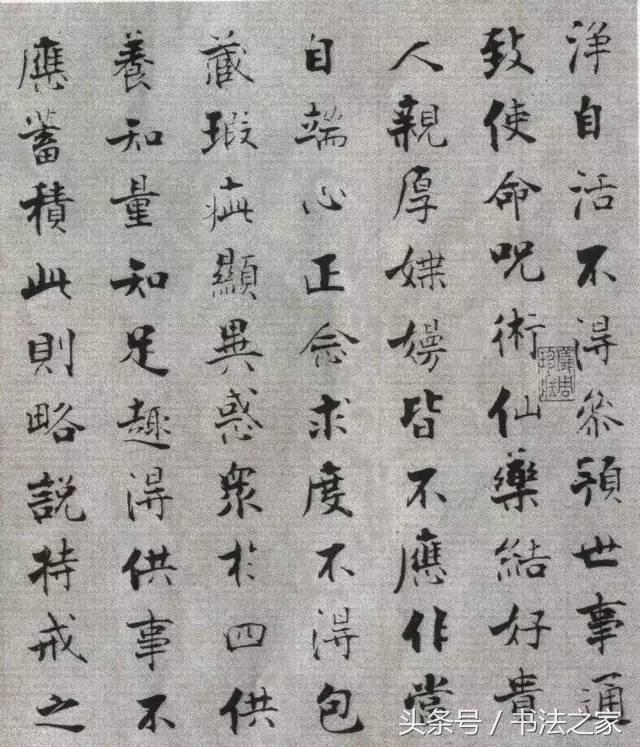 淨自活不得叅預世事通
致使命呪術仙藥結好貴
人親厚媟嫚皆不應作當
自端心正念求度不得包
藏瑕疵顯異惑衆於四供
養知量知足趣得供事不
應蓄積此則略説持戒之
头条号／书法之家